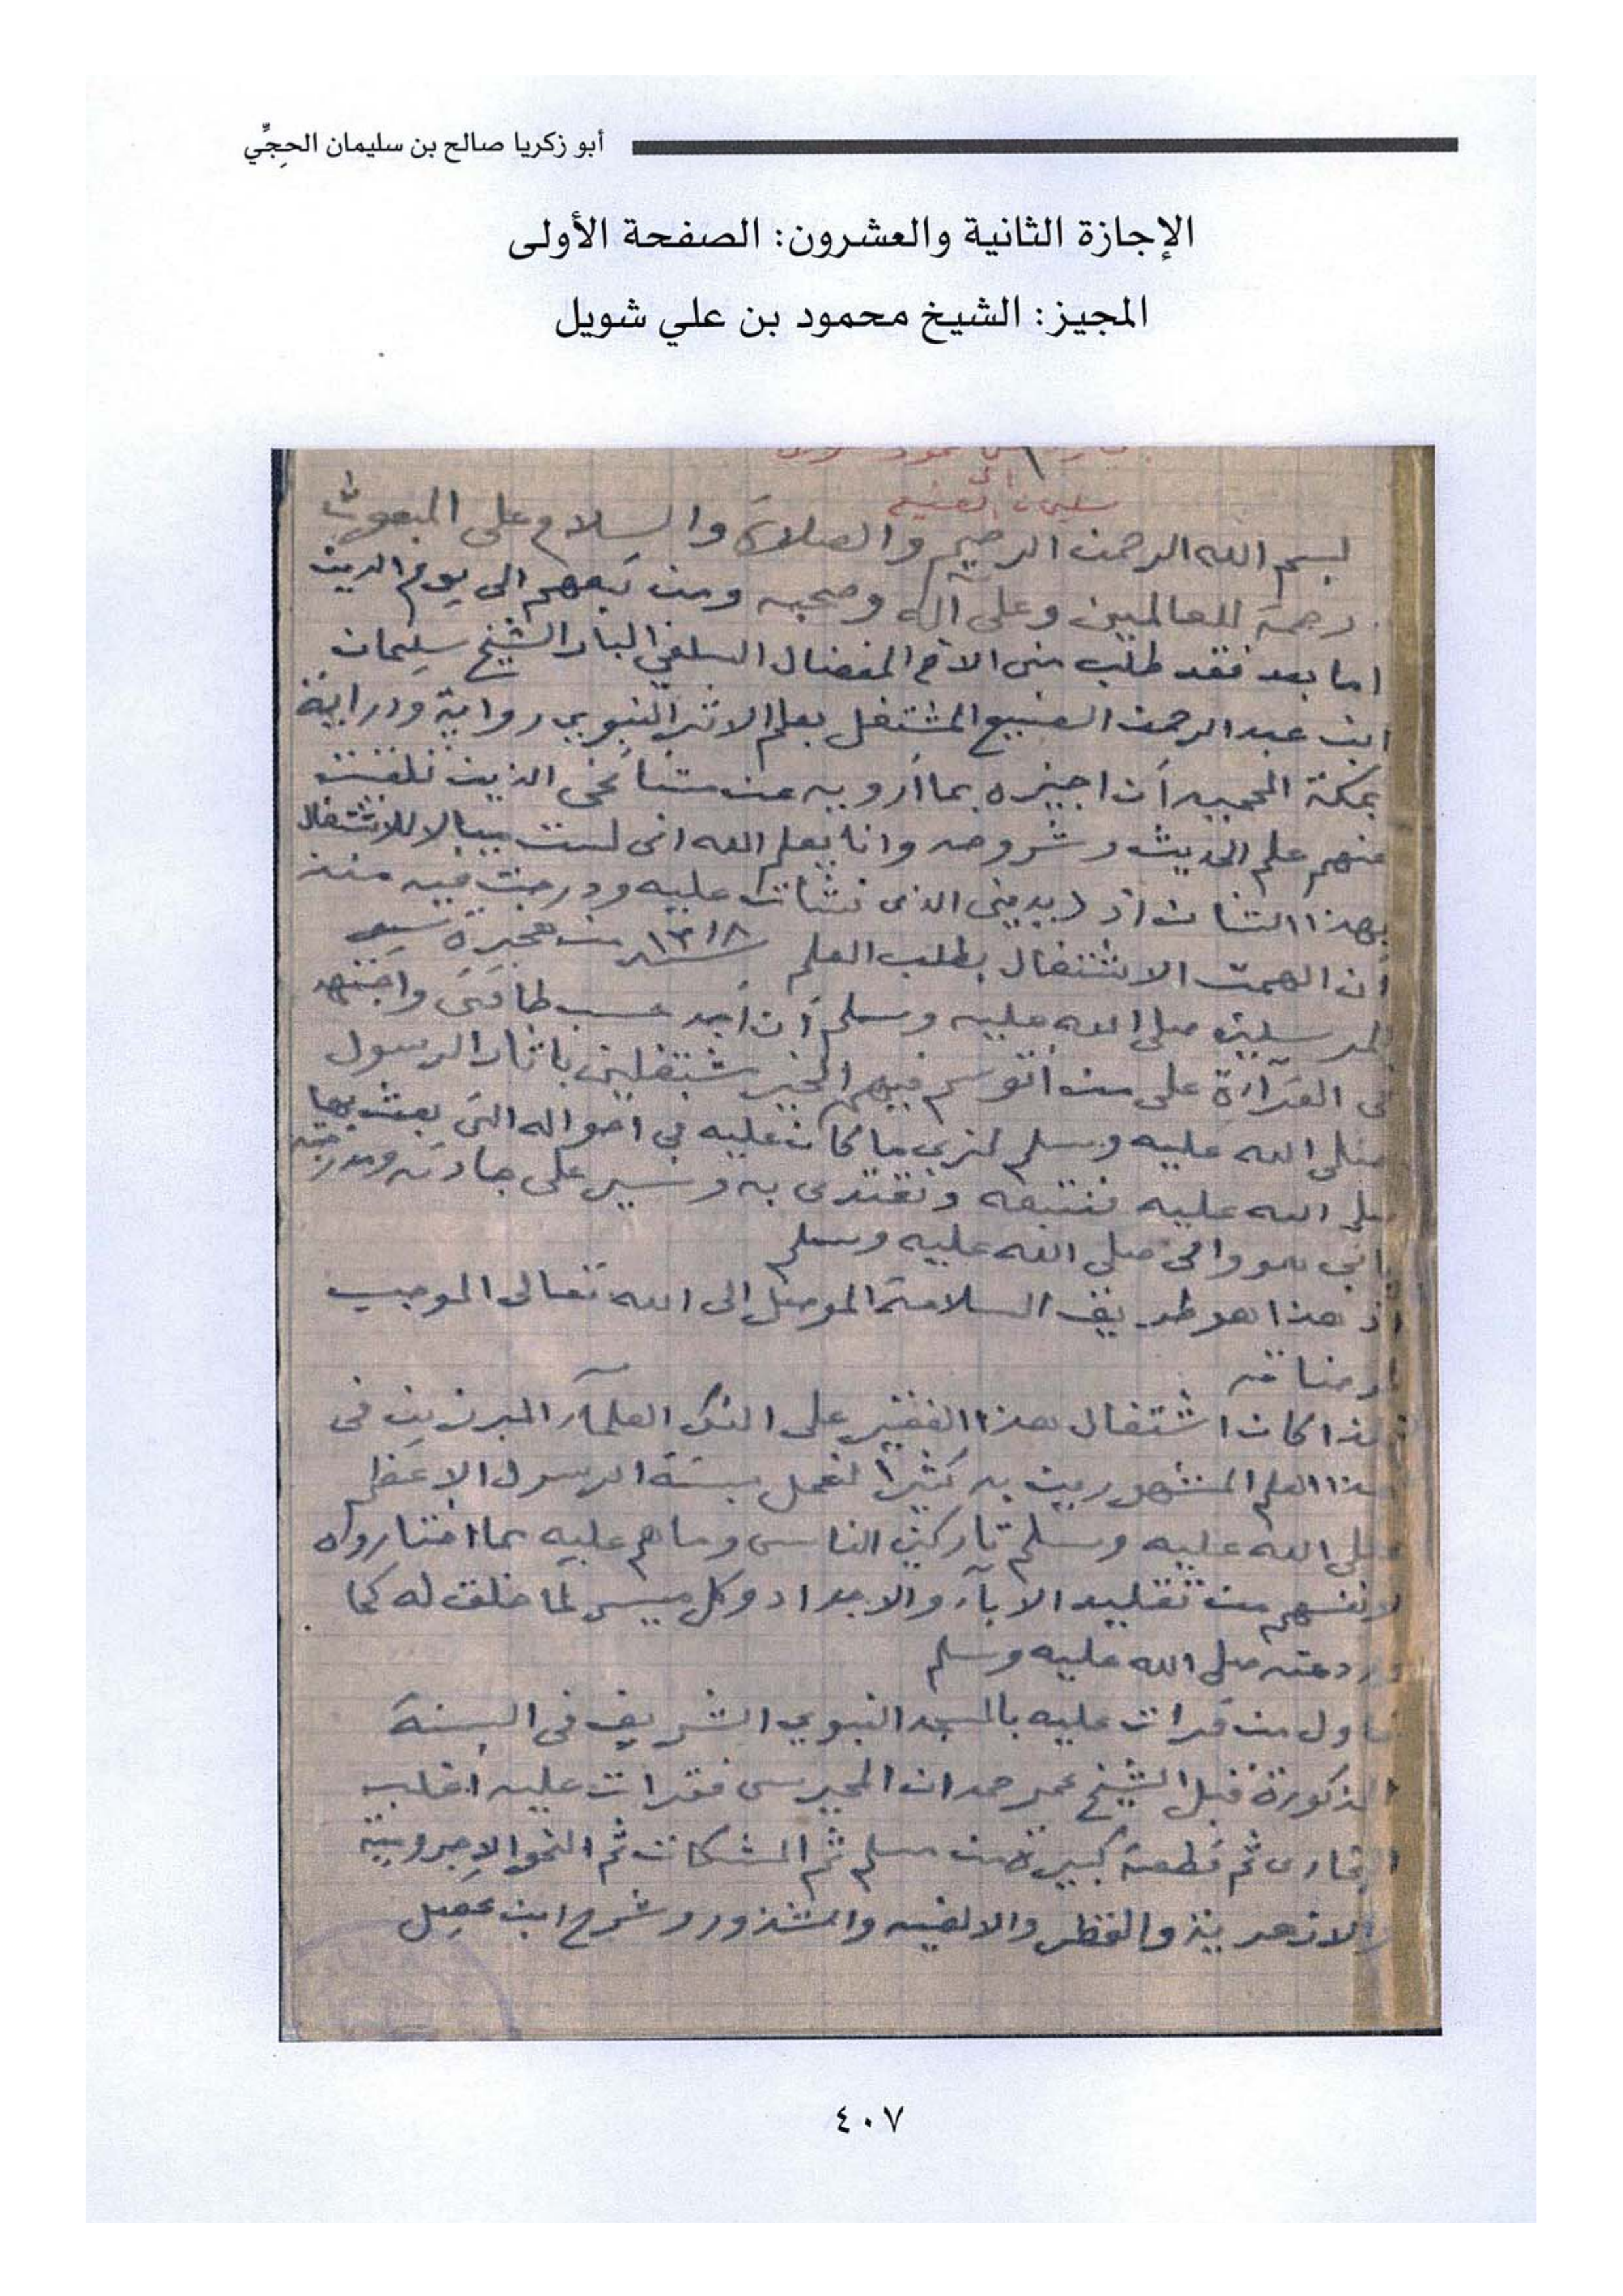 أبو زكريا صالح بن سليمان الحِجِّي
الإجازة الثانية والعشرون: الصفحة الأولى
المجيز: الشيخ محمود بن علي شويل
الى
سليمان الصنيع
بسم الله الرحمن الرحيم والصلاة والسلام على المبعوث
رحمة للعالمين وعلى آله وصحبه ومن تبعهم الى يوم الدين
اما بعد فقد طلب منى الاخ المفضال السلفي البار الشيخ سليمان
ابن عبد الرحمن الصنيع المشتغل بعلم الاثر النبوي رواية ودراية
بمكة المحميه أن اجيزه بما أرويه عن مشائخى الذين تلقيت
عنهم علم الحديث وشروحه وانا يعلم الله انى لست ميالا للاشتغال
بهذا الشان اذ ديدنى الذى نشات عليه ودرجت فيه منذ
أن الهمت الاشتغال بطلب العلم سنة ١٣١٨ من هجرة سيد
المرسلين صلى الله عليه وسلم أن أجد حسب طاقتى واجتهد
فى القرآءة على من أتوسم فيهم الخير مشتغلين باثار الرسول
صلى الله عليه وسلم لنرى ما كان عليه في احواله التى بعث بها
صلى الله عليه فنتبعه ونقتدى به ونسير على جادته ومدرجته
صلى الله عليه وسلم
اذ هذا هو طريق السلامة الموصل الى الله تعالى الموجب
لمرضاته
لهذا كان اشتغال هذا الفقير على العلمآء المبرزين فى
هذا العلم المشهورين به كثيرا لنعمل بسنة الرسول الاعظم
صلى الله عليه وسلم تاركين الناس وما هم عليه مما اختاروه
لانفسهم من تقليد الابآء والاجداد وكل ميسر لما خلق له كما
ورد عنه صلى الله عليه وسلم
فاول من قرات عليه بالمسجد النبوي الشريف فى السنة
المذكورة قبل الشيخ عمر حمدان المحرسى فقرات عليه اغلب
البخارى ثم قطعة كبيرة من مسلم ثم المشكات ثم النحو الاجروميه
والازهرية والقطر والالفيه والشذور وشرح ابن عقيل
٤٠٧